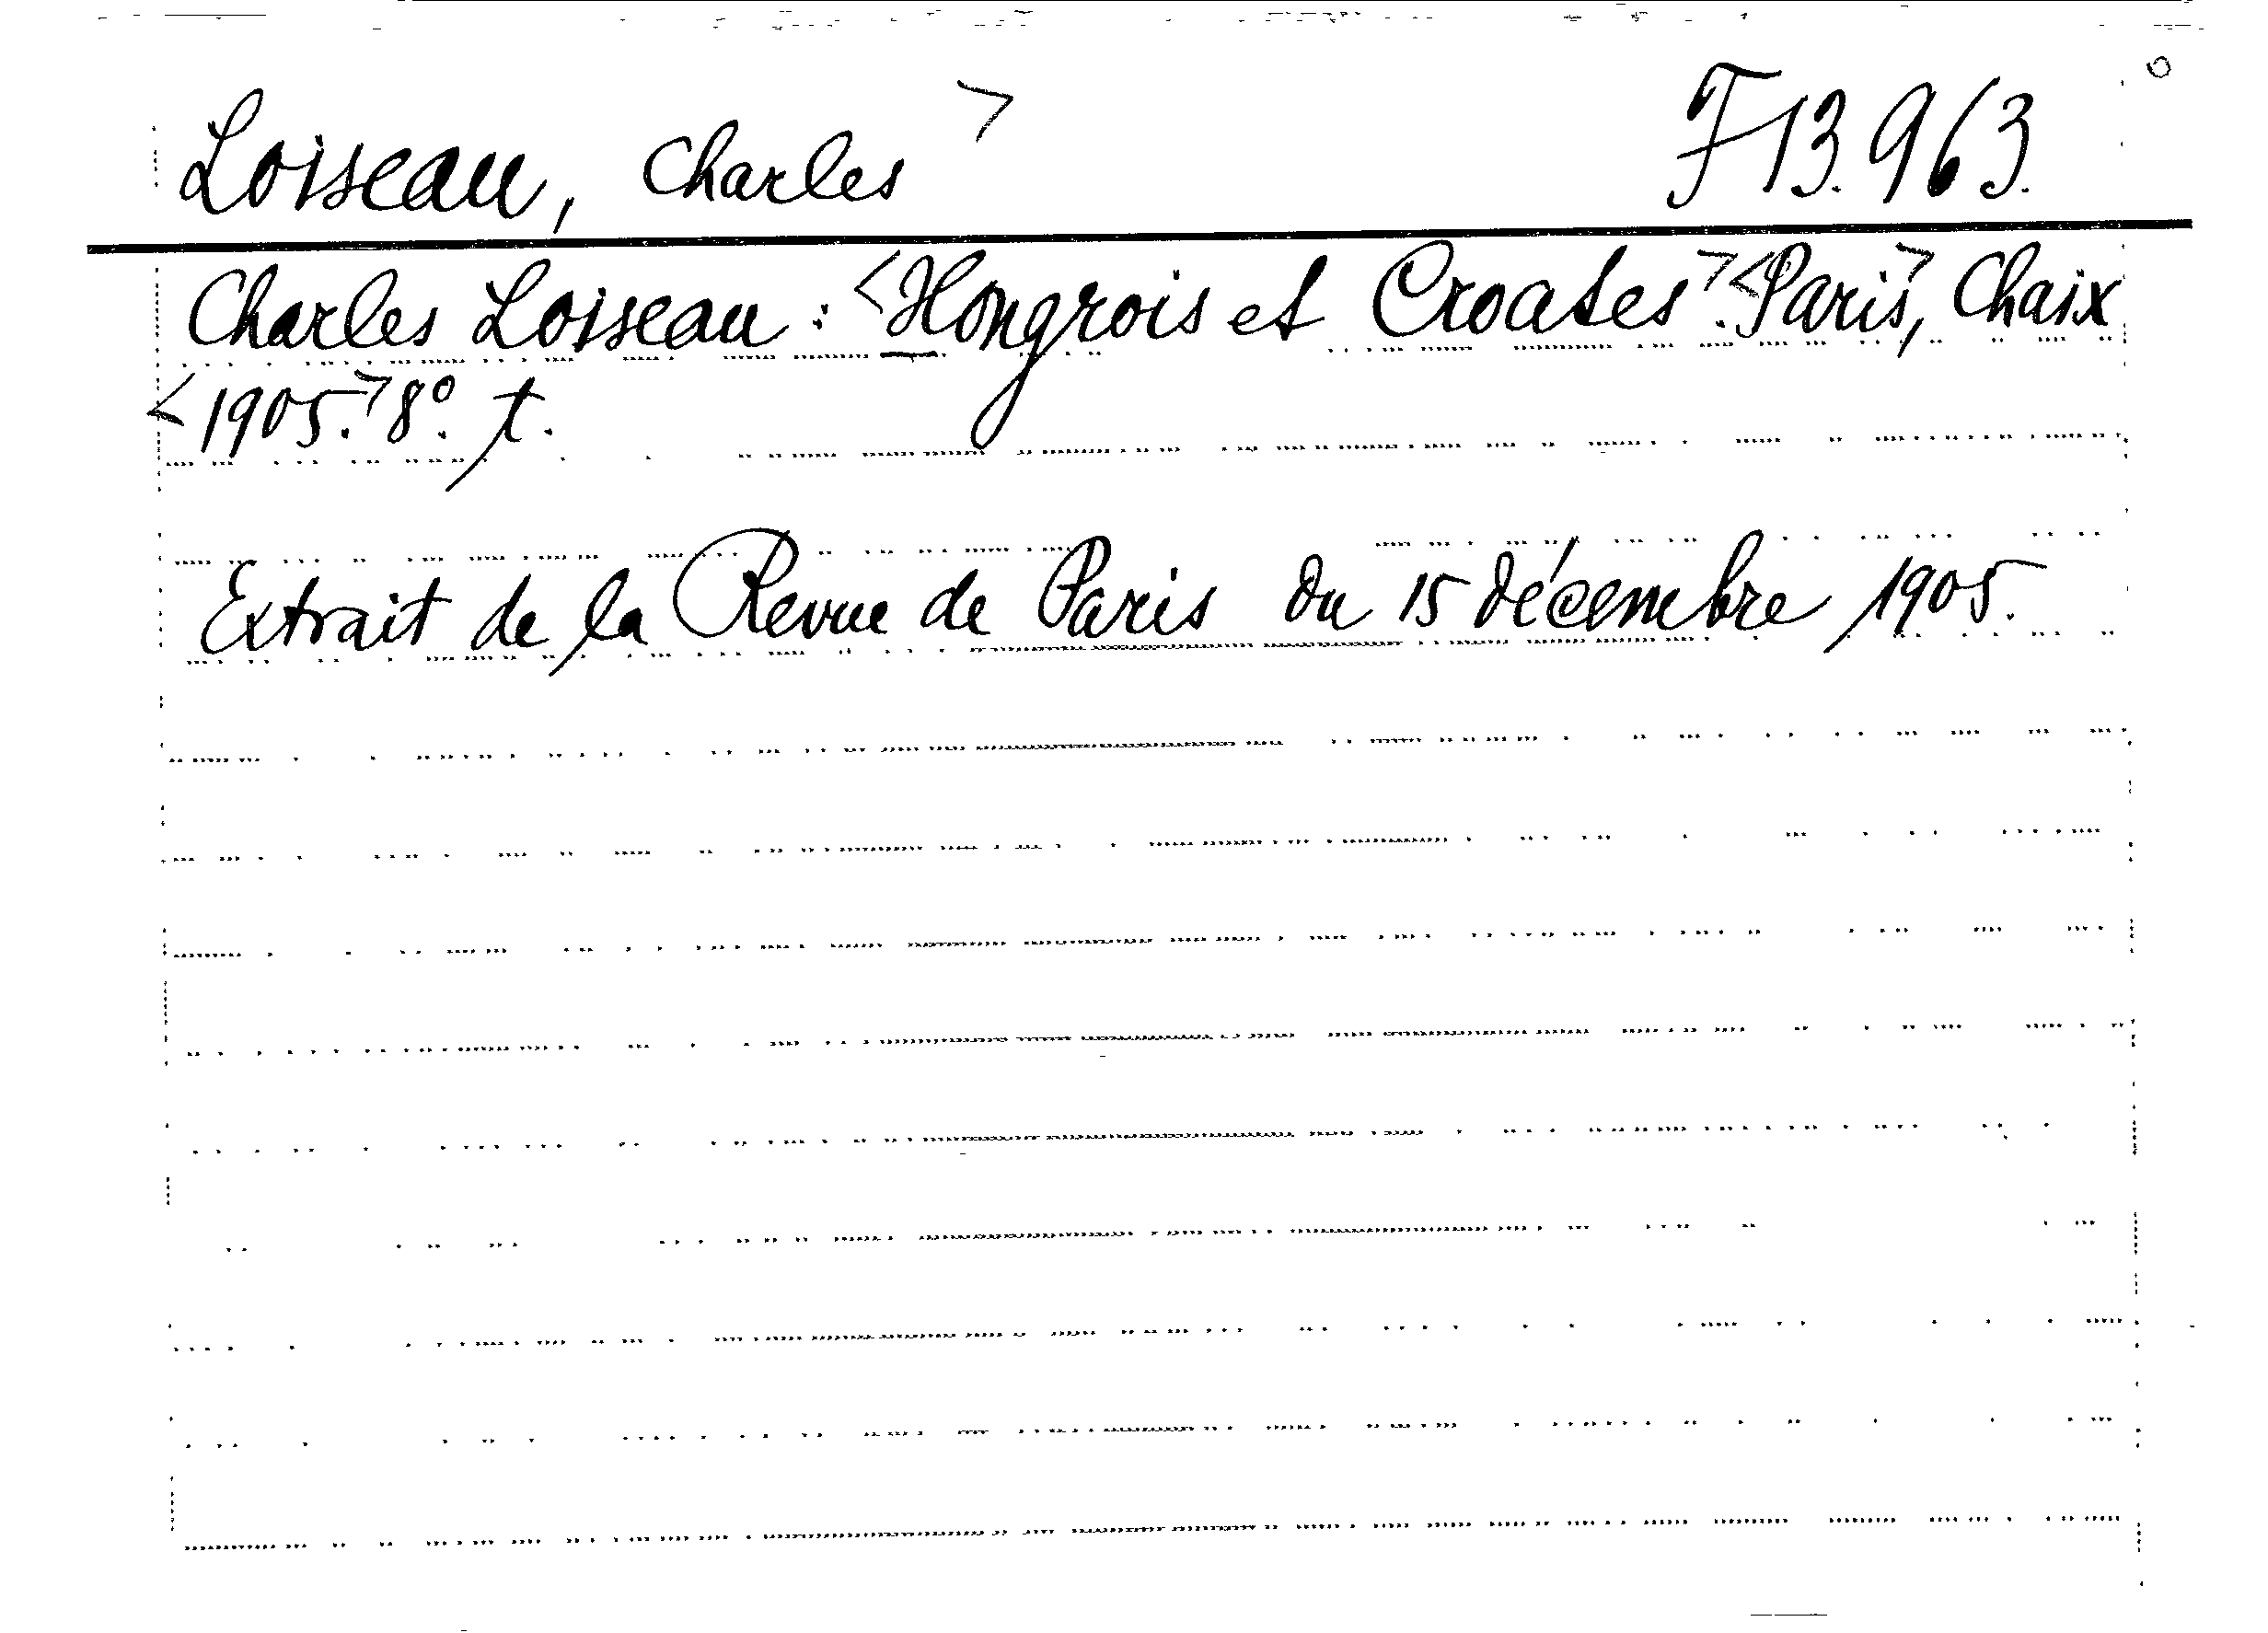 Loiseau, Charles> F 13.963.
Charles Loiseau: <Hongrois et Croates>. <Paris>, Chaix
<1905.> 8°. t.
Extrait de la Revue de Paris du 15 décembre 1905.